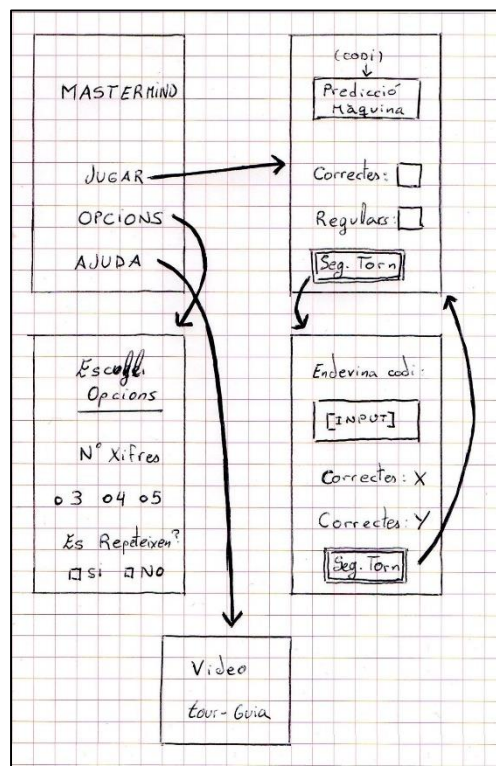 MASTERMIND
JUGAR
OPCIONS
AJUDA
(CODI)
Predicció
Màquina
Correctes:
Regulars:
Seg. Torn
Escogli
Opcions
Nº Xifres
3 4 5
Es Repeteixen?
Sí NO
Endevina codi:
[INPUT]
Correctes: X
Correctes: Y
Seg. Torn
Video
tour-Guia